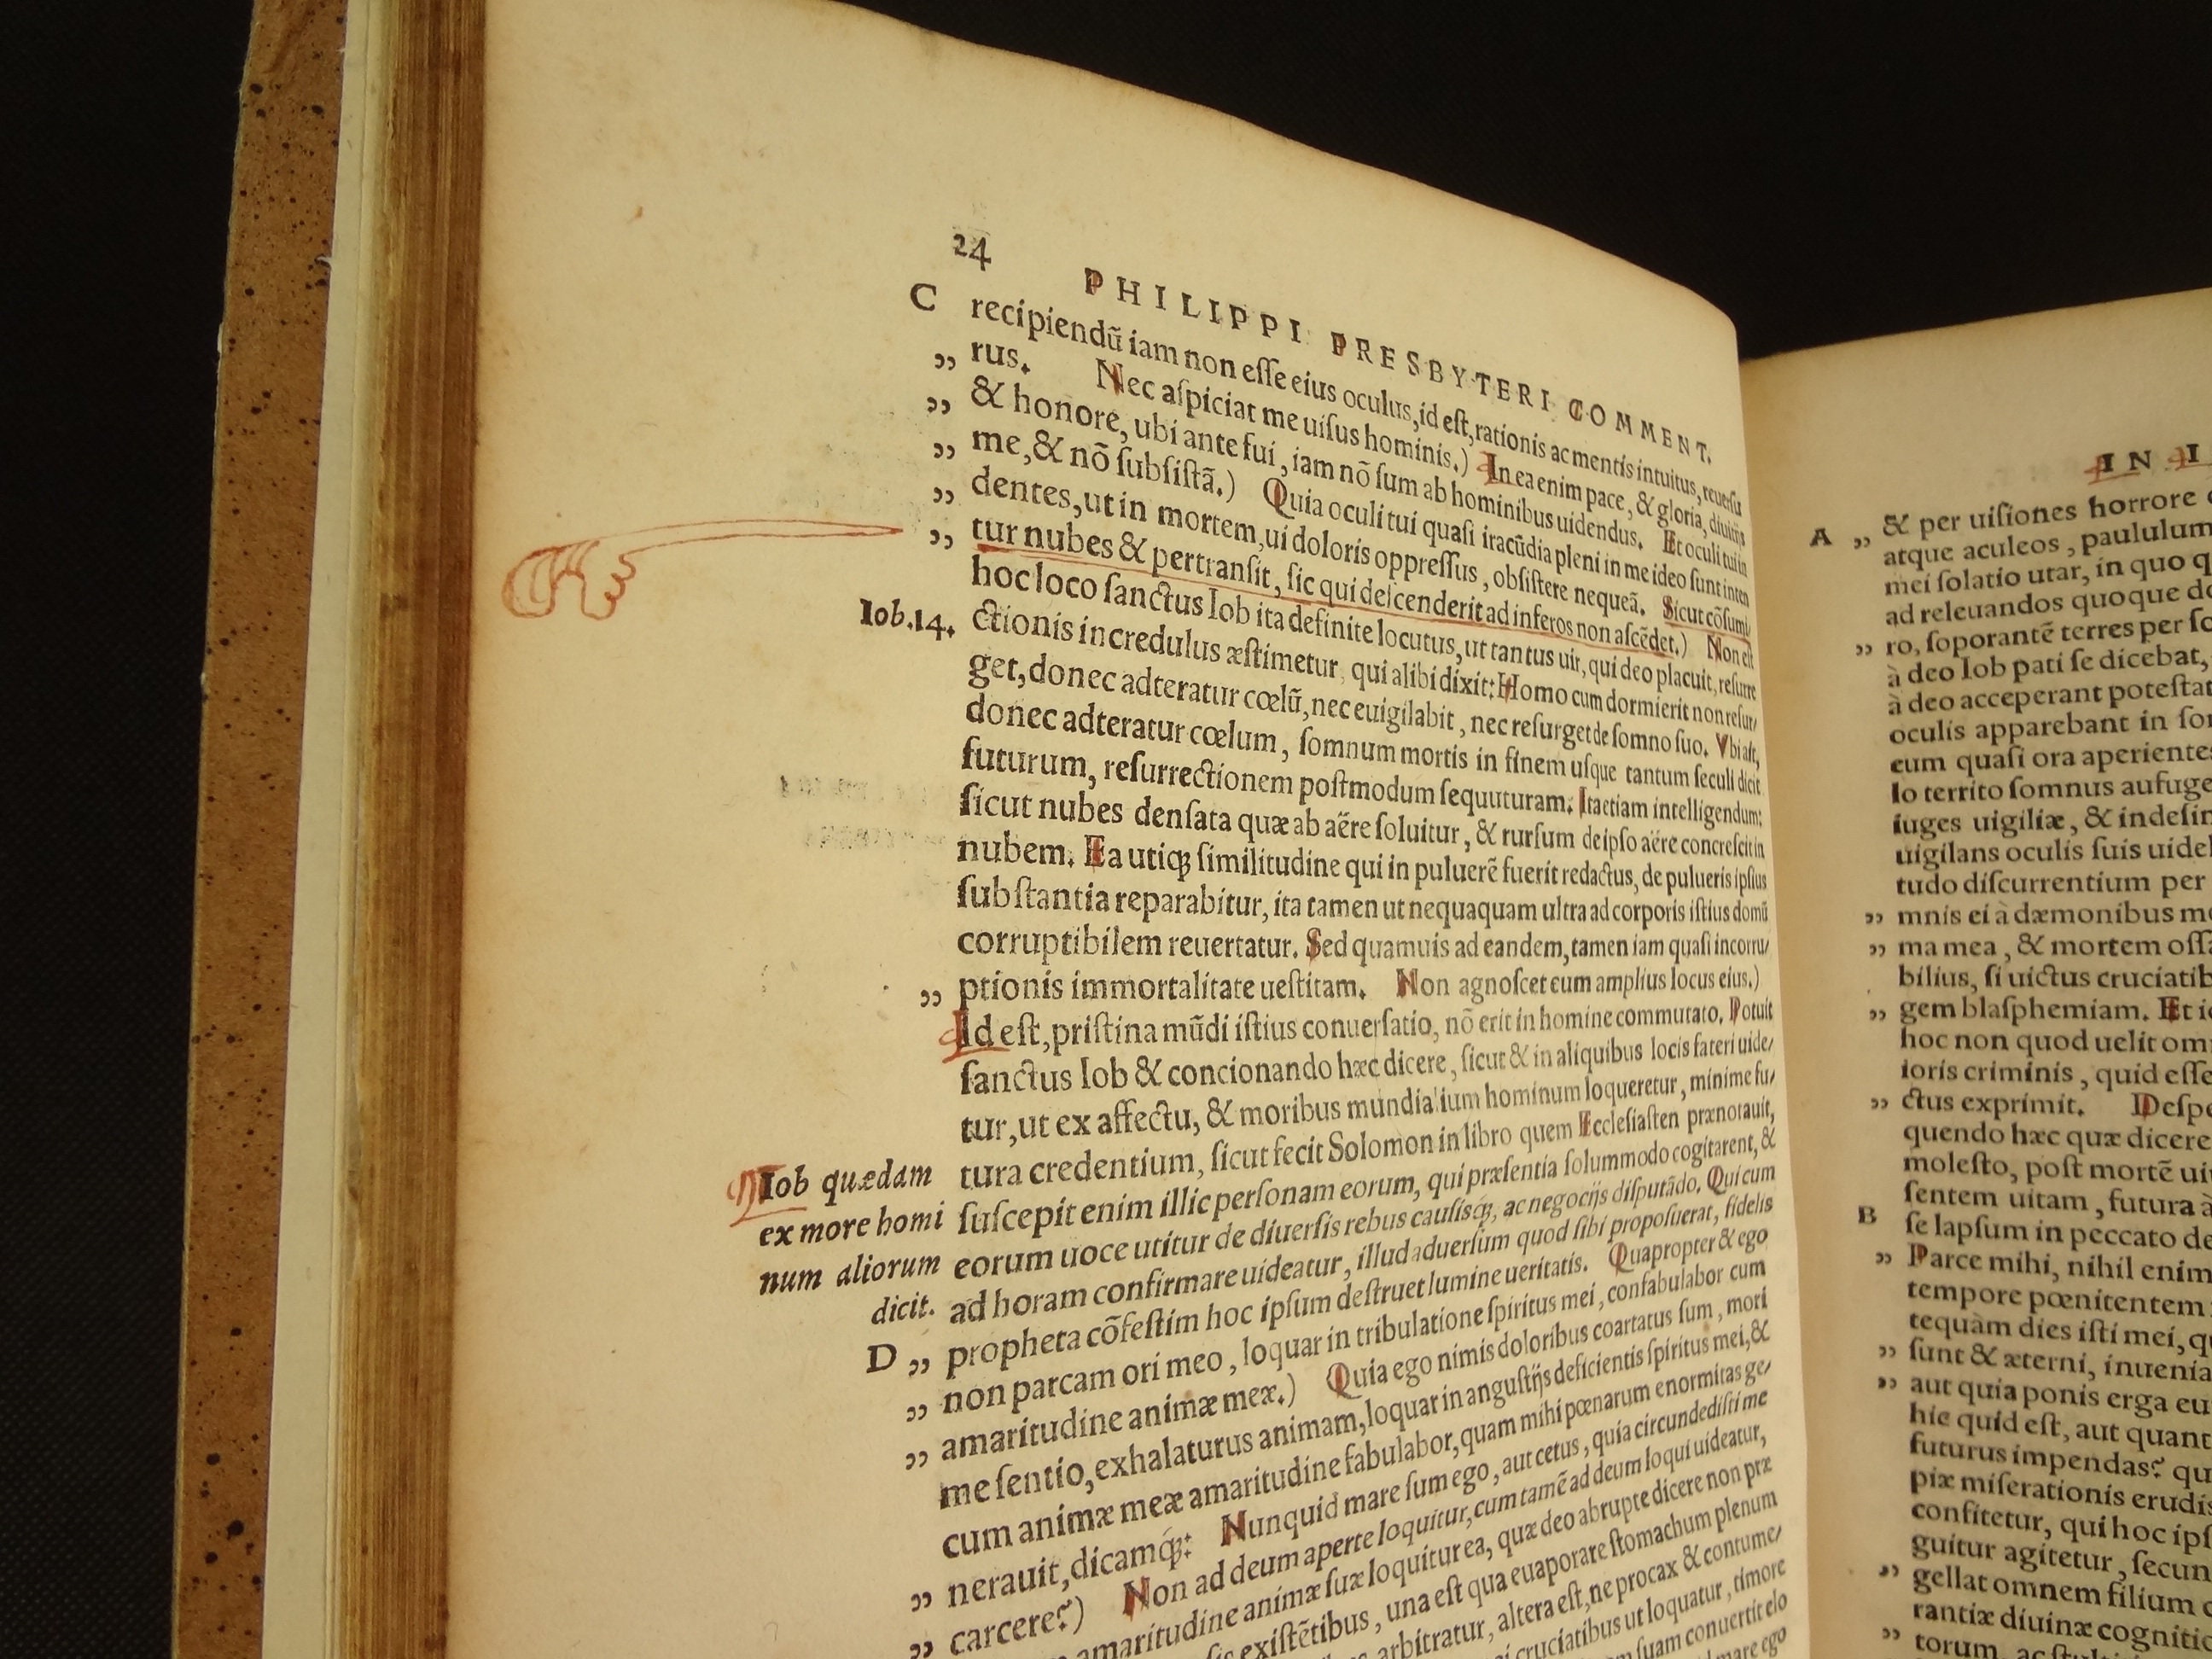 24
PHILIPPI PRESBYTERI COMMENT.
C recipiendũ iam non eſſe eius oculus, id eſt, rationis ac mentis intuitus, reuerſu
„ rus. Nec aſpiciat me uiſus hominis.) In ea enim pace, & gloria, diuitijs
„ & honore, ubi ante fui, iam nõ ſum ab hominibus uidendus. Et oculi tui in
„ me, & nõ ſubſiſtã.) Quia oculi tui quaſi iracũdia pleni in me ideo ſunt inten
„ dentes, ut in mortem, ui doloris oppreſſus, obſiſtere nequeã. Sicut cõſumi
„ tur nubes & pertranſit, ſic qui deſcenderit ad inferos non aſcẽdet.) Non eſt
hoc loco ſanctus Iob ita definite locutus, ut tantus uir, qui deo placuit, reſurre
Iob.14. ctionis incredulus æſtimetur, qui alibi dixit: Homo cum dormierit non reſur/
get, donec adteratur cœlũ, nec euigilabit, nec reſurget de ſomno ſuo. Vbi aſt,
donec adteratur cœlum, ſomnum mortis in finem uſque tantum ſeculi dicit
futurum, reſurrectionem poſtmodum ſequuturam. Ita etiam intelligendum:
ſicut nubes denſata quæ ab aëre ſoluitur, & rurſum de ipſo aëre concreſcit in
nubem. Ea utiqꝫ ſimilitudine qui in puluerẽ fuerit redactus, de pulueris ipſius
ſubſtantia reparabitur, ita tamen ut nequaquam ultra ad corporis iſtius domũ
corruptibilem reuertatur. Sed quamuis ad eandem, tamen iam quaſi incorru/
„ ptionis immortalitate ueſtitam. Non agnoſcet eum amplius locus eius.)
Id eſt, priſtina mũdi iſtius conuerſatio, nõ erit in homine commutato. Potuit
ſanctus Iob & concionando hæc dicere, ſicut & in aliquibus locis fateri uide/
tur, ut ex affectu, & moribus mundialium hominum loqueretur, minime fu/
Iob quædam tura credentium, ſicut fecit Solomon in libro quem Eccleſiaſten prænotauit,
ex more homi ſuſcepit enim illic perſonam eorum, qui præſentia ſolummodo cogitarent, &
num aliorum eorum uoce utitur de diuerſis rebus cauſisqꝫ, ac negocijs diſputãdo. Qui cum
dicit. ad horam confirmare uideatur, illud aduerſum quod ſibi propoſuerat, fidelis
D „ propheta cõfeſtim hoc ipſum deſtruet lumine ueritatis. Quapropter & ego
„ non parcam ori meo, loquar in tribulatione ſpiritus mei, confabulabor cum
„ amaritudine animæ meæ.) Quia ego nimis doloribus coartatus ſum, mori
me ſentio, exhalaturus animam, loquar in anguſtijs deficientis ſpiritus mei, &
cum animæ meæ amaritudine fabulabor, quam mihi pœnarum enormitas ge/
„ nerauit, dicamqꝫ: Nunquid mare ſum ego, aut cetus, quia circundediſti me
„ carcere?) Non ad deum aperte loquitur, cum tamẽ ad deum loqui uideatur,
amaritudine animæ ſuæ loquitur ea, quæ deo abrupte dicere non præ
exiſtẽtibus, una eſt qua euaporare ſtomachum plenum
arbitratur, altera eſt, ne procax & contume/
cruciatibus ut loquatur, timore
ſuam conuertit elo
mare ego
IN I
A „ & per uiſiones horrore
atque aculeos, paululum
mei ſolatio utar, in quo
ad releuandos quoque
„ ro, ſoporantẽ terres per
à deo Iob pati ſe dicebat,
à deo acceperant
oculis apparebant in
eum quaſi ora
lo territo ſomnus
iuges uigiliæ, &
uigilans oculis ſuis
tudo diſcurrentium per
„ mnis ei à dæmonibus
„ ma mea, & mortem
bilius, ſi uictus
„ gem blaſphemiam. Et
hoc non quod uelit
ioris criminis, quid
„ ctus exprimit.
quendo hæc quæ
moleſto, poſt mortẽ
ſentem uitam, futura
B ſe lapſum in peccato
„ Parce mihi, nihil enim
tempore pœnitentem
tequàm dies iſti mei,
„ ſunt & æterni,
„ aut quia ponis erga
hic quid eſt, aut
futurus impendas?
piæ miſerationis
confitetur, qui hoc
guitur agitetur,
„ gellat omnem filium
rantiæ diuinæ
„ torum,